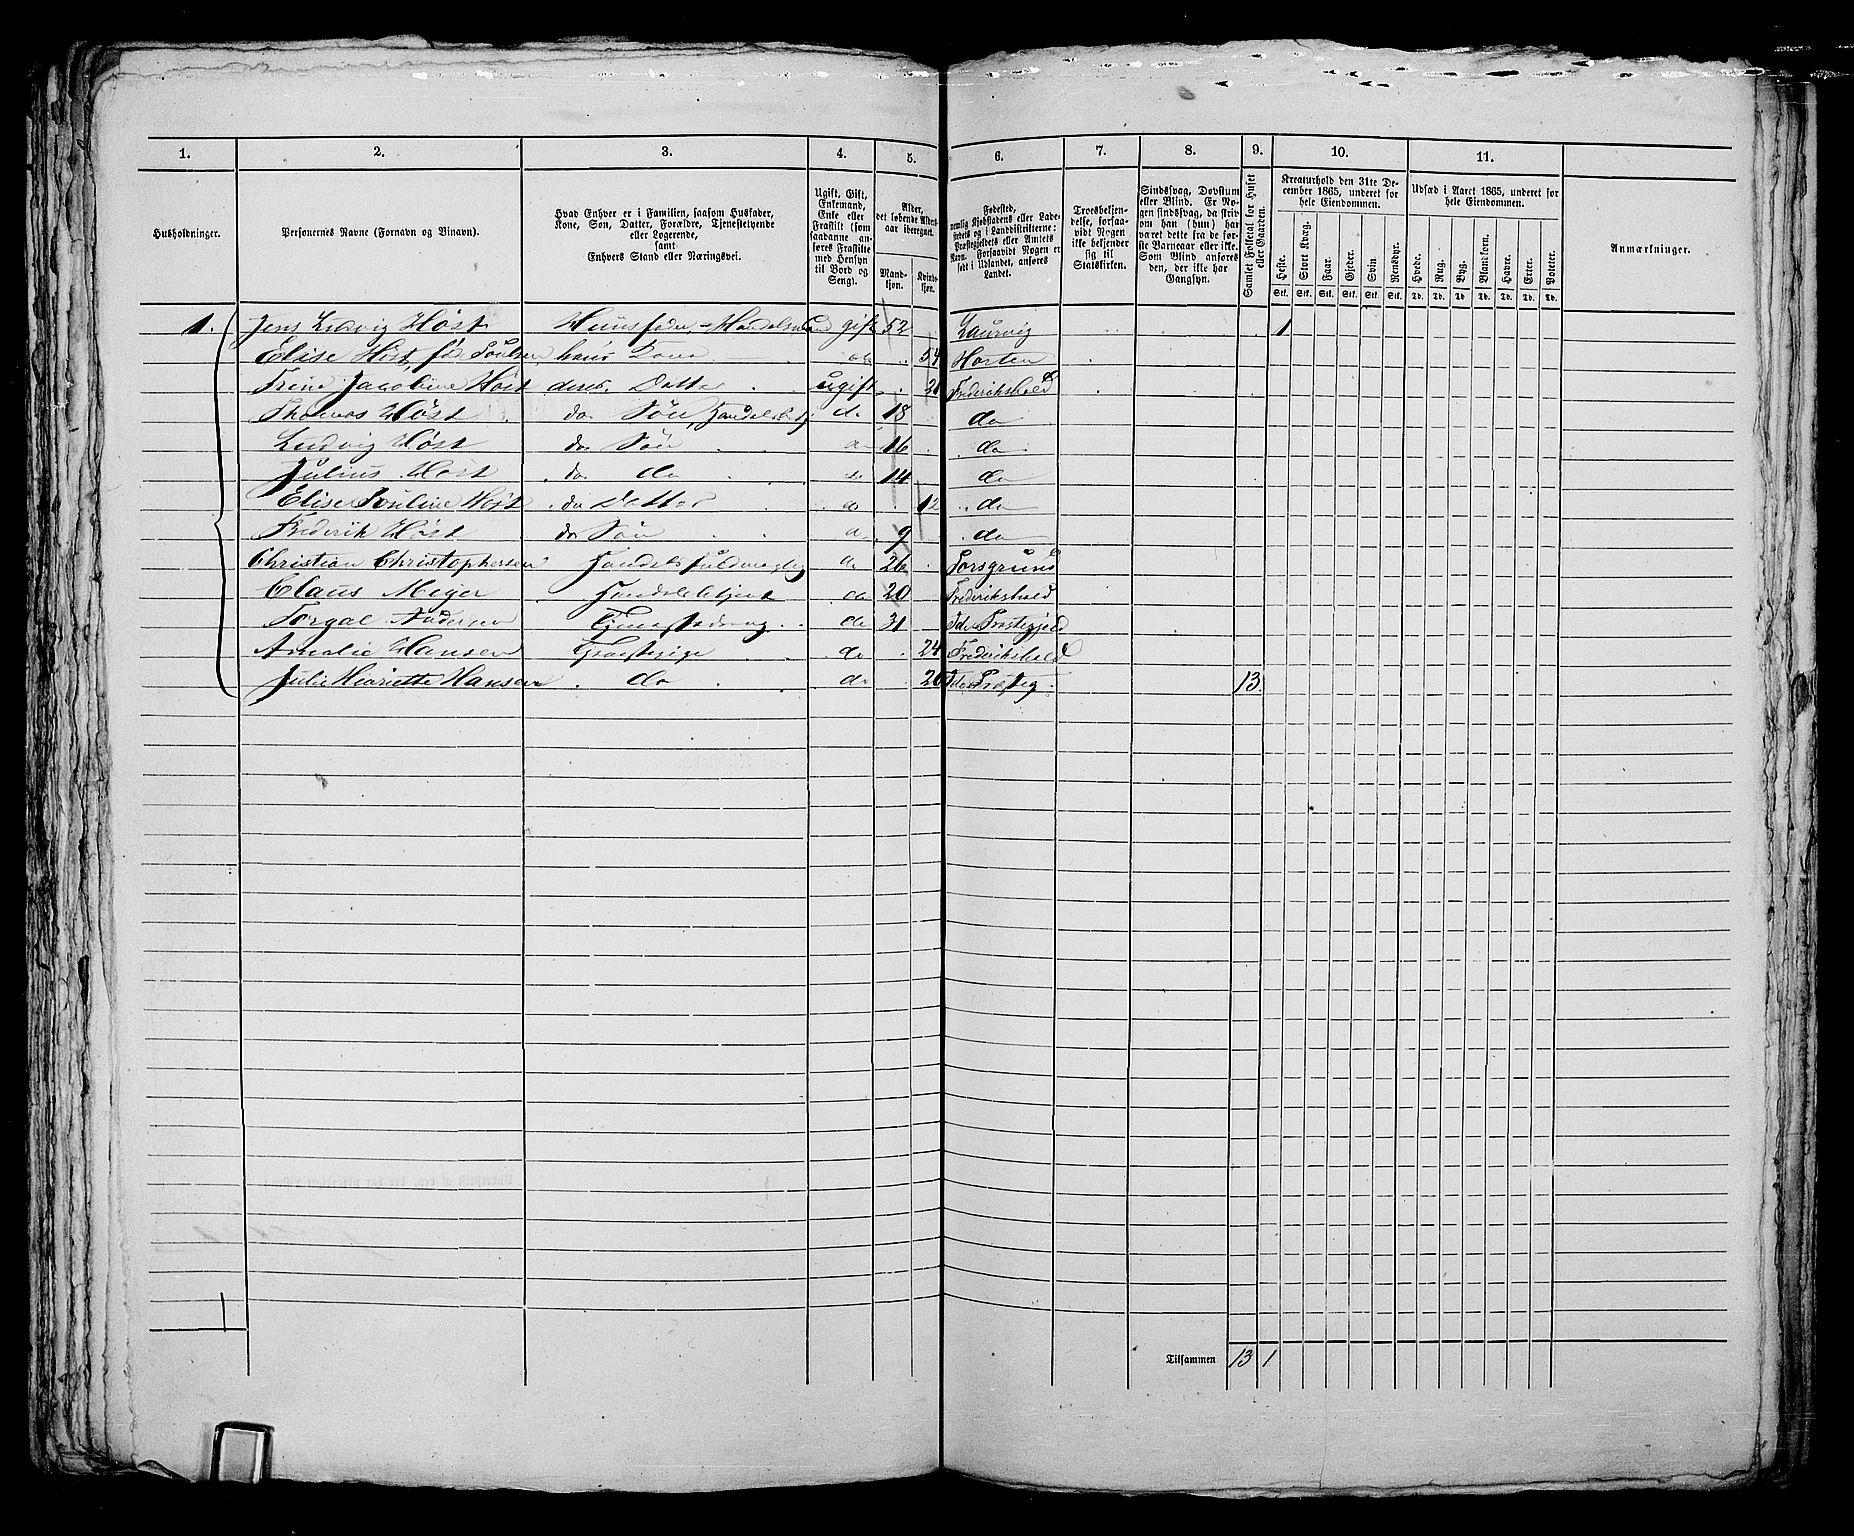 1. 2. 3. 4. 5. 6. 7. 8. 9. 10. 11.
Husholdninger.
Personernes Navne (Fornavn og Binavn).
Hvad Enhver er i Familien, saasom Husfader,
Kone, Søn, Datter, Forældre, Tjenestetyende
eller Logerende,
samt
Enhvers Stand eller Næringsvei.
Ugift, Gift,
Enkemand,
Enke eller
Fraskilt (som
saadanne an-
føres Fraskilte
med Hensyn
til Bord og
Seng).
Alder,
det løbende Alders-
aar iberegnet.
Mand-
kjøn.
Kvinde-
kjøn.
Fødested,
nemlig Kjøbstadens eller Lade-
stedets og i Landdistrikterne:
Præstegjeldets eller Amtets
Navn. Forsaavidt Nogen er
født i Udlandet, anføres
Landet.
Troesbekjen-
delse, forsaa-
vidt Nogen
ikke bekjender
sig til
Statskirken.
Sindssvag, Døvstum
eller Blind. Er No-
gen sindssvag, da skriv
om han (hun) har
været dette fra de før-
ste Barneaar eller ikke.
Som Blind anføres
den, der ikke har
Gangsyn.
Samlet Folketal for Huset
eller Gaarden.
Kreaturhold den 31te De-
cember 1865, underet for
hele Eiendommen.
Heste. Stort Kvæg. Faar. Gjeder. Svin Rensdyr.
Stk. Stk. Stk. Stk. Stk. Stk.
Udsæd i Aaret 1865, underet for
hele Eiendommen.
Hvede. Rug. Byg. Blandkorn. Havre. Erter. Poteter.
Td. Td. Td Td. Td. Td. Td.
Anmærkninger.
1. Jens Ludvig Höst Huusfader - Handelsmand gift 52 Laurvig 1
Elise Höst, fød Poulsen hans Kone do 54 Horten
Trine Jacobine Höst deres Datter ugift Frederikshald
Thomas Höst do Søn, do 18 do
Ludvig Höst do Søn do 16 do
Julius Höst do do do 14 do
Elise Pouline Höst do Datter do 12 do
Frederik Höst do Søn do 9 do
Christian Christophersen Handelsfuldmægtig do 26 Porsgrund
Claus Meyer Handelsbetjent do 20 Frederikshald
Torgal Andersen do 31 Ids Præstegjeld
Amalie Hansen Tjenestepige do 24 Frederikshald
Julie Henriette Hansen do do 26 Ids Præsteg 13.
1
Tilsammen 13 1